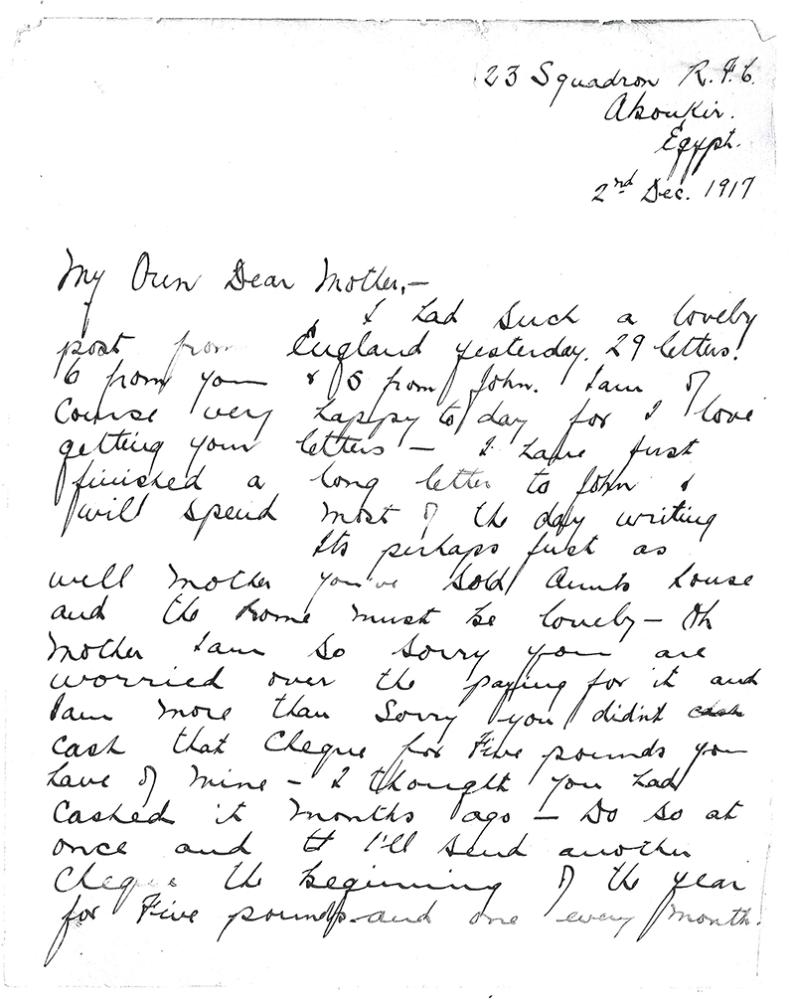 23 Squadron R.F.C.
Aboukir.
Egypt.
2nd Dec. 1917
My Own Dear Mother,-
I had such a lovely
post from England yesterday. 29 letters!
6 from you & 5 from John. I am of
course very happy to day for I love
getting your letters - I have just
finished a long letter to John &
will spend most of the day writing
Its perhaps just as
well Mother you've sold Aunts house
and the home must be lovely - Oh
Mother I am so sorry you are
worried over the paying for it and
I am more than sorry you didn't cash
cash that cheque for Five pounds you
have of mine - I thought you had
cashed it months ago - Do so at
once and I'll send another
cheque the beginning of the year
for Five pounds and one every month.